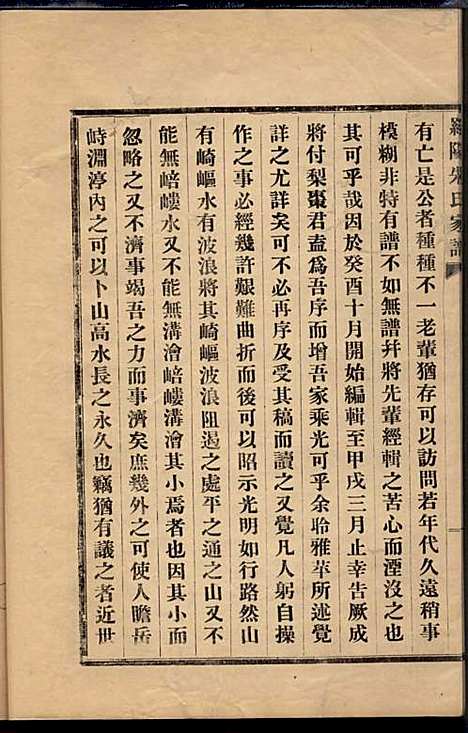 有亡是公者種種不一老輩猶存可以訪問若年代久遠稍事
模糊非特有譜不如無譜幷將先輩經輯之苦心而湮沒之也
其可乎哉因於癸酉十月開始編輯至甲戌三月止幸告厥成
將付梨棗君盍爲吾序而增吾家乘光可乎余聆雅莘所述覺
詳之尤詳矣可不必再序及受其稿而讀之又覺凡人躬自操
作之事必經幾許艱難曲折而後可以昭示光明如行路然山
有崎嶇水有波浪將其崎嶇波浪阻遏之處平之通之山又不
能無嵱嶁水又不能無溝澮嵱嶁溝澮其小焉者也因其小而
忽略之又不濟事竭吾之力而事濟矣庶幾外之可使人瞻岳
峙淵渟內之可以卜山高水長之永久也竊猶有議之者近世